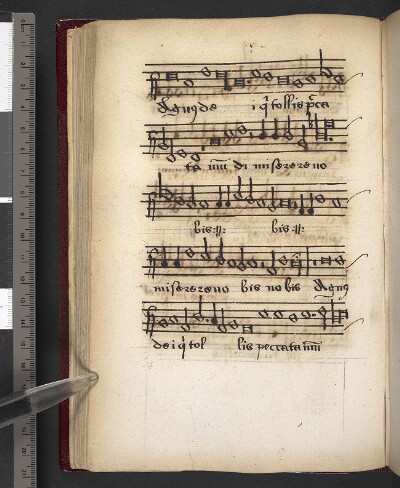 Agnus de i q tollis pcca
ta mu di miserereno
bis :||: bis :||:
miserereno bis nobis Agnus
dei q tol lis peccata mu